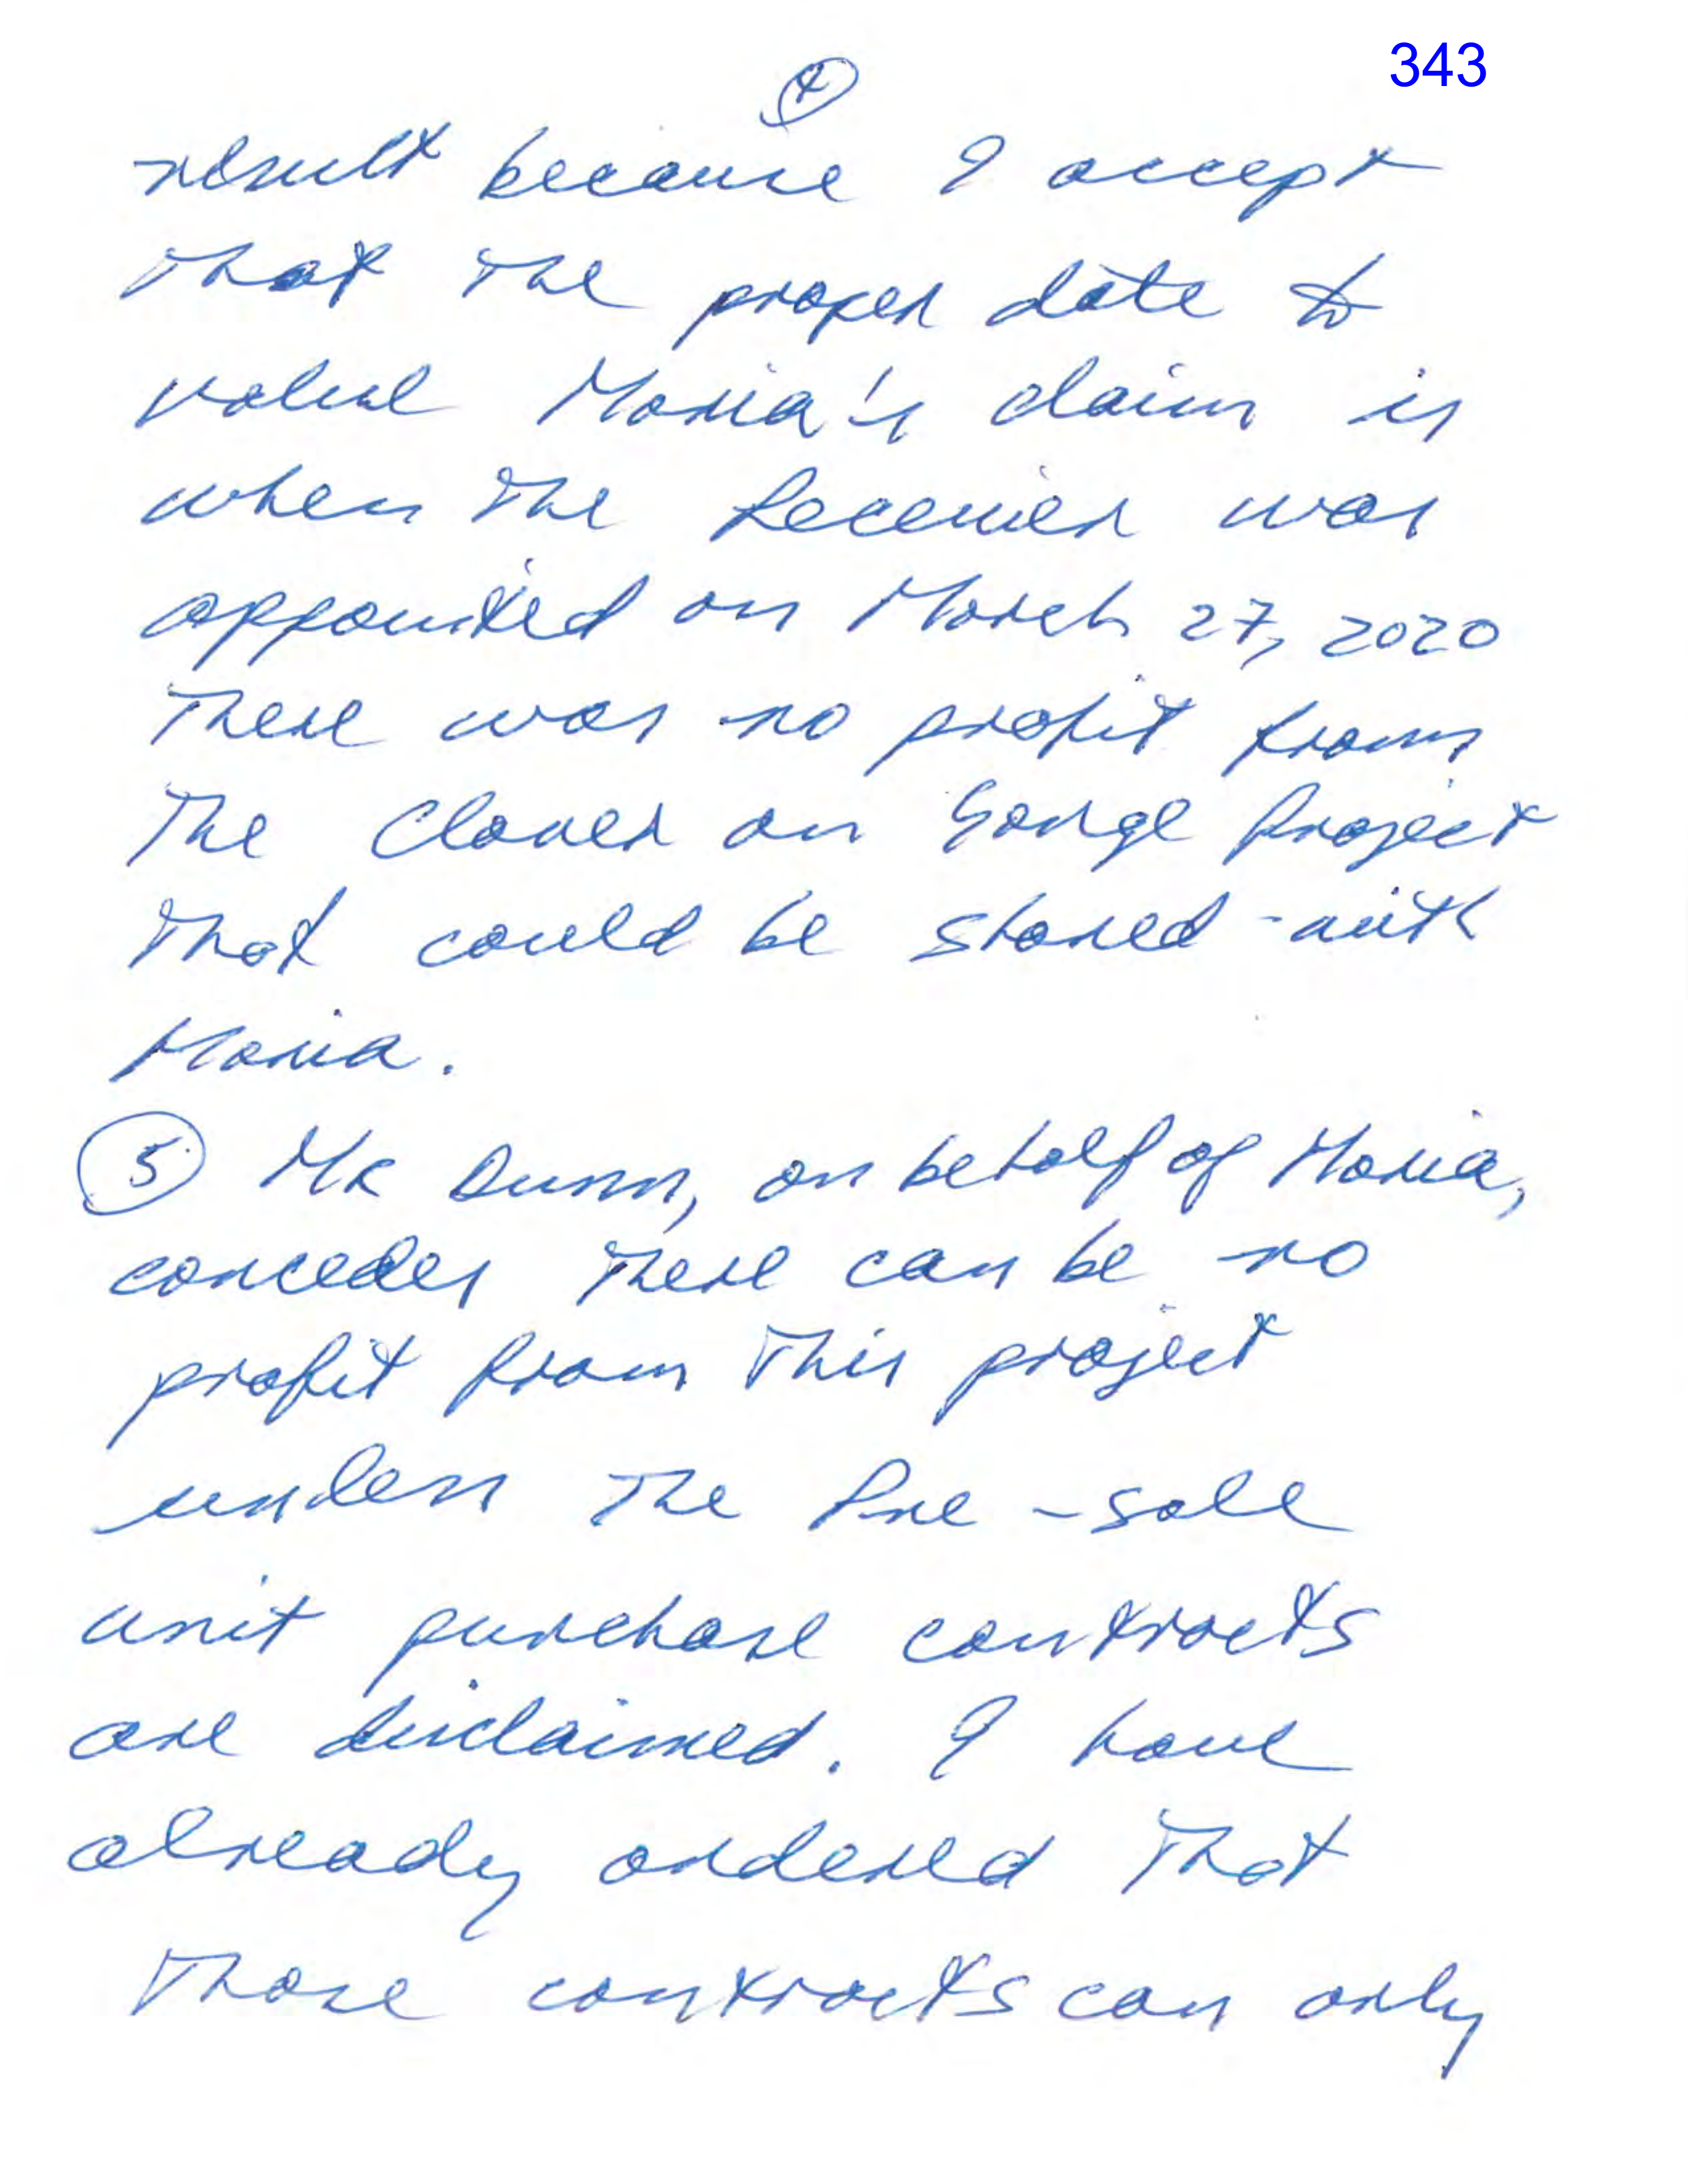 343
4
result because I accept
that the proper date to
value Maria's claim is
when the Receiver was
appointed on March 27, 2020
There was no profit from
the Clover on Yonge Project
that could be shared with
Maria.
5 Mr Dunn, on behalf of Maria,
concedes there can be no
profit from this project
unless the Pre-sale
unit purchase contracts
are disclaimed. I have
already ordered that
those contracts can only